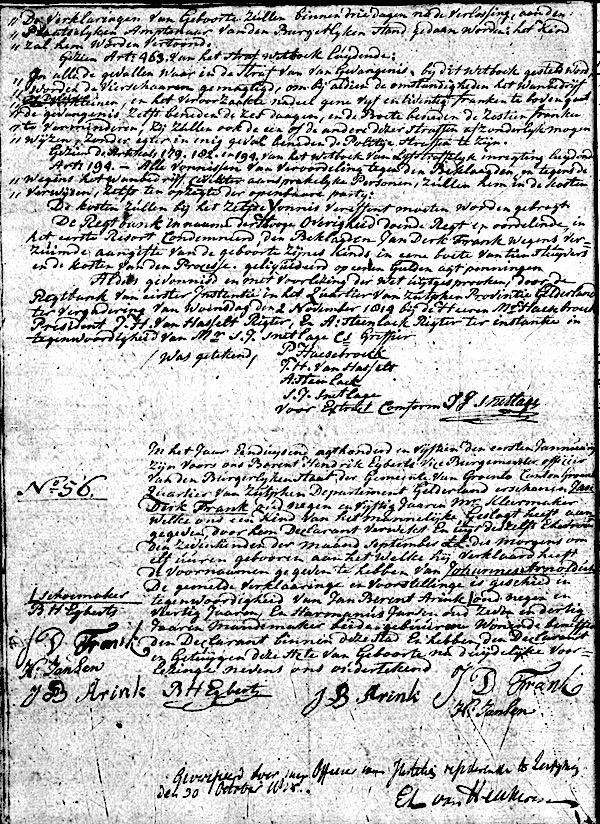 " De Verklaringen van Geboorte zullen binnen drie dagen na de Verlossing, aan den
" Plaatselyken Amptenaar van den Burgerlyken Stand gedaan worden: het kind
" zal hem werden vertoond.
Gezien Art: 463. van het Straf Wetboek luydende:
" In alle de gevallen waar in de Straf van van Gevangenis, bij dit Wetboek gesteld word,
" worden de Vierschaaren gemagtigd, om bij aldien de omstandigheden het Wanbedrijf
" verkleinen, en het veroorzaakte nadeel gene vijf en twintig franken te boven gaat
" de gevangenis zelfs beneden de zes dagen, en de Boete beneden de zestien franken
" te verminderen, zij zullen ook de een of de andere dezer straffen afzonderlijk mogen
" wijzen, zonder egter in enig geval beneden de Politie Straffen te zijn.
Gezien de Artikelen 179. 182. en 194. van het Wetboek van Lijfstraffelijke inregting luydende
Art: 194. Alle Vonnissen van Veroordeling tegen den Beklaagden, en tegen de
" wegens het wanbedrijf civiliter aanspraakelijke Personen, zullen hem in de kosten
" verwijzen, zelfs ten opzigte der openbaare partij:
De kosten zullen bij het zelfde Vonnis vereffent moeten worden gebragt
De Regtbank in naame der Hooge Overigheid doende Regt en oordelende, in
het eerste Resort Condemneerd den Beklaagden Jan Derk Frank wegens Ver-
zuimde aangifte van de geboorte zijnes kinds in eene boete van tien Stuyvers
en de kosten van den Processe, geliquideerd op eenen Gulden agt penningen
Aldus gevonnisd en met voorlezing der Wet uytgesproken, door de
Regtbank van eerster Instantie in het Quartier van Zutphen Provintie Gelderland
ter Vergadering van Woensdag den 2 November 1814 bij de Heeren Mr. Haesebroek
President J. H. van Hasselt Regter, en A. Steinlack Regter ter instantie in
tegenwoordigheid van Mr. S. J. Snetlage Cs Griffier
(Was getekend) P. Haesebroek
J. H. van Hasselt
A Steinlack
S. J. Snetlage
Voor Extract Conform S J Snetlage
In het Jaar Eenduysend agthonderd en vijftien den eersten Jannuarij
zijn voor ons Barent Hendrik Egberts Vice Burgemeester officier
No. 56.
van den Burgerlyken Staat der Gemeente van Groenlo Canton Groenlo
Quartier van Zutphen Departement Gelderland verschenen Jan
Derk Frank oud negen en vijftig Jaaren Mr. Kleermaker
Welke ons een kind van het mannelijke Geslagt heeft aan-
gegeven, door hem Declarant verwekt en bij deszelfs Echtevrouw
den zevenden der maand September des morgens om
elf uuren gebooren, aan het welke hij Verklaard heeft
de voornaamen gegeven te hebben van Johannes Arnoldus
De gemelde verklaaringe en voorstellinge is geschied in
1 schoenmaker
B H Egberts
tegenwoordigheid van Jan Berent Arink oud negen en
veertig Jaaren, En Harmannis Jansen oud zeven en dertig
Jaaren beide gebuuren wonende
den Declarant binnen deze Stad En hebben den Declarant
en getuigen deze Acte van Geboorte na duydelijke Voor-
lezinge nevens ons ondertekend
J D Frank
H. Jansen
J B Arink B H Egberts J B Arink J D Frank
H. Jansen
den 20 October